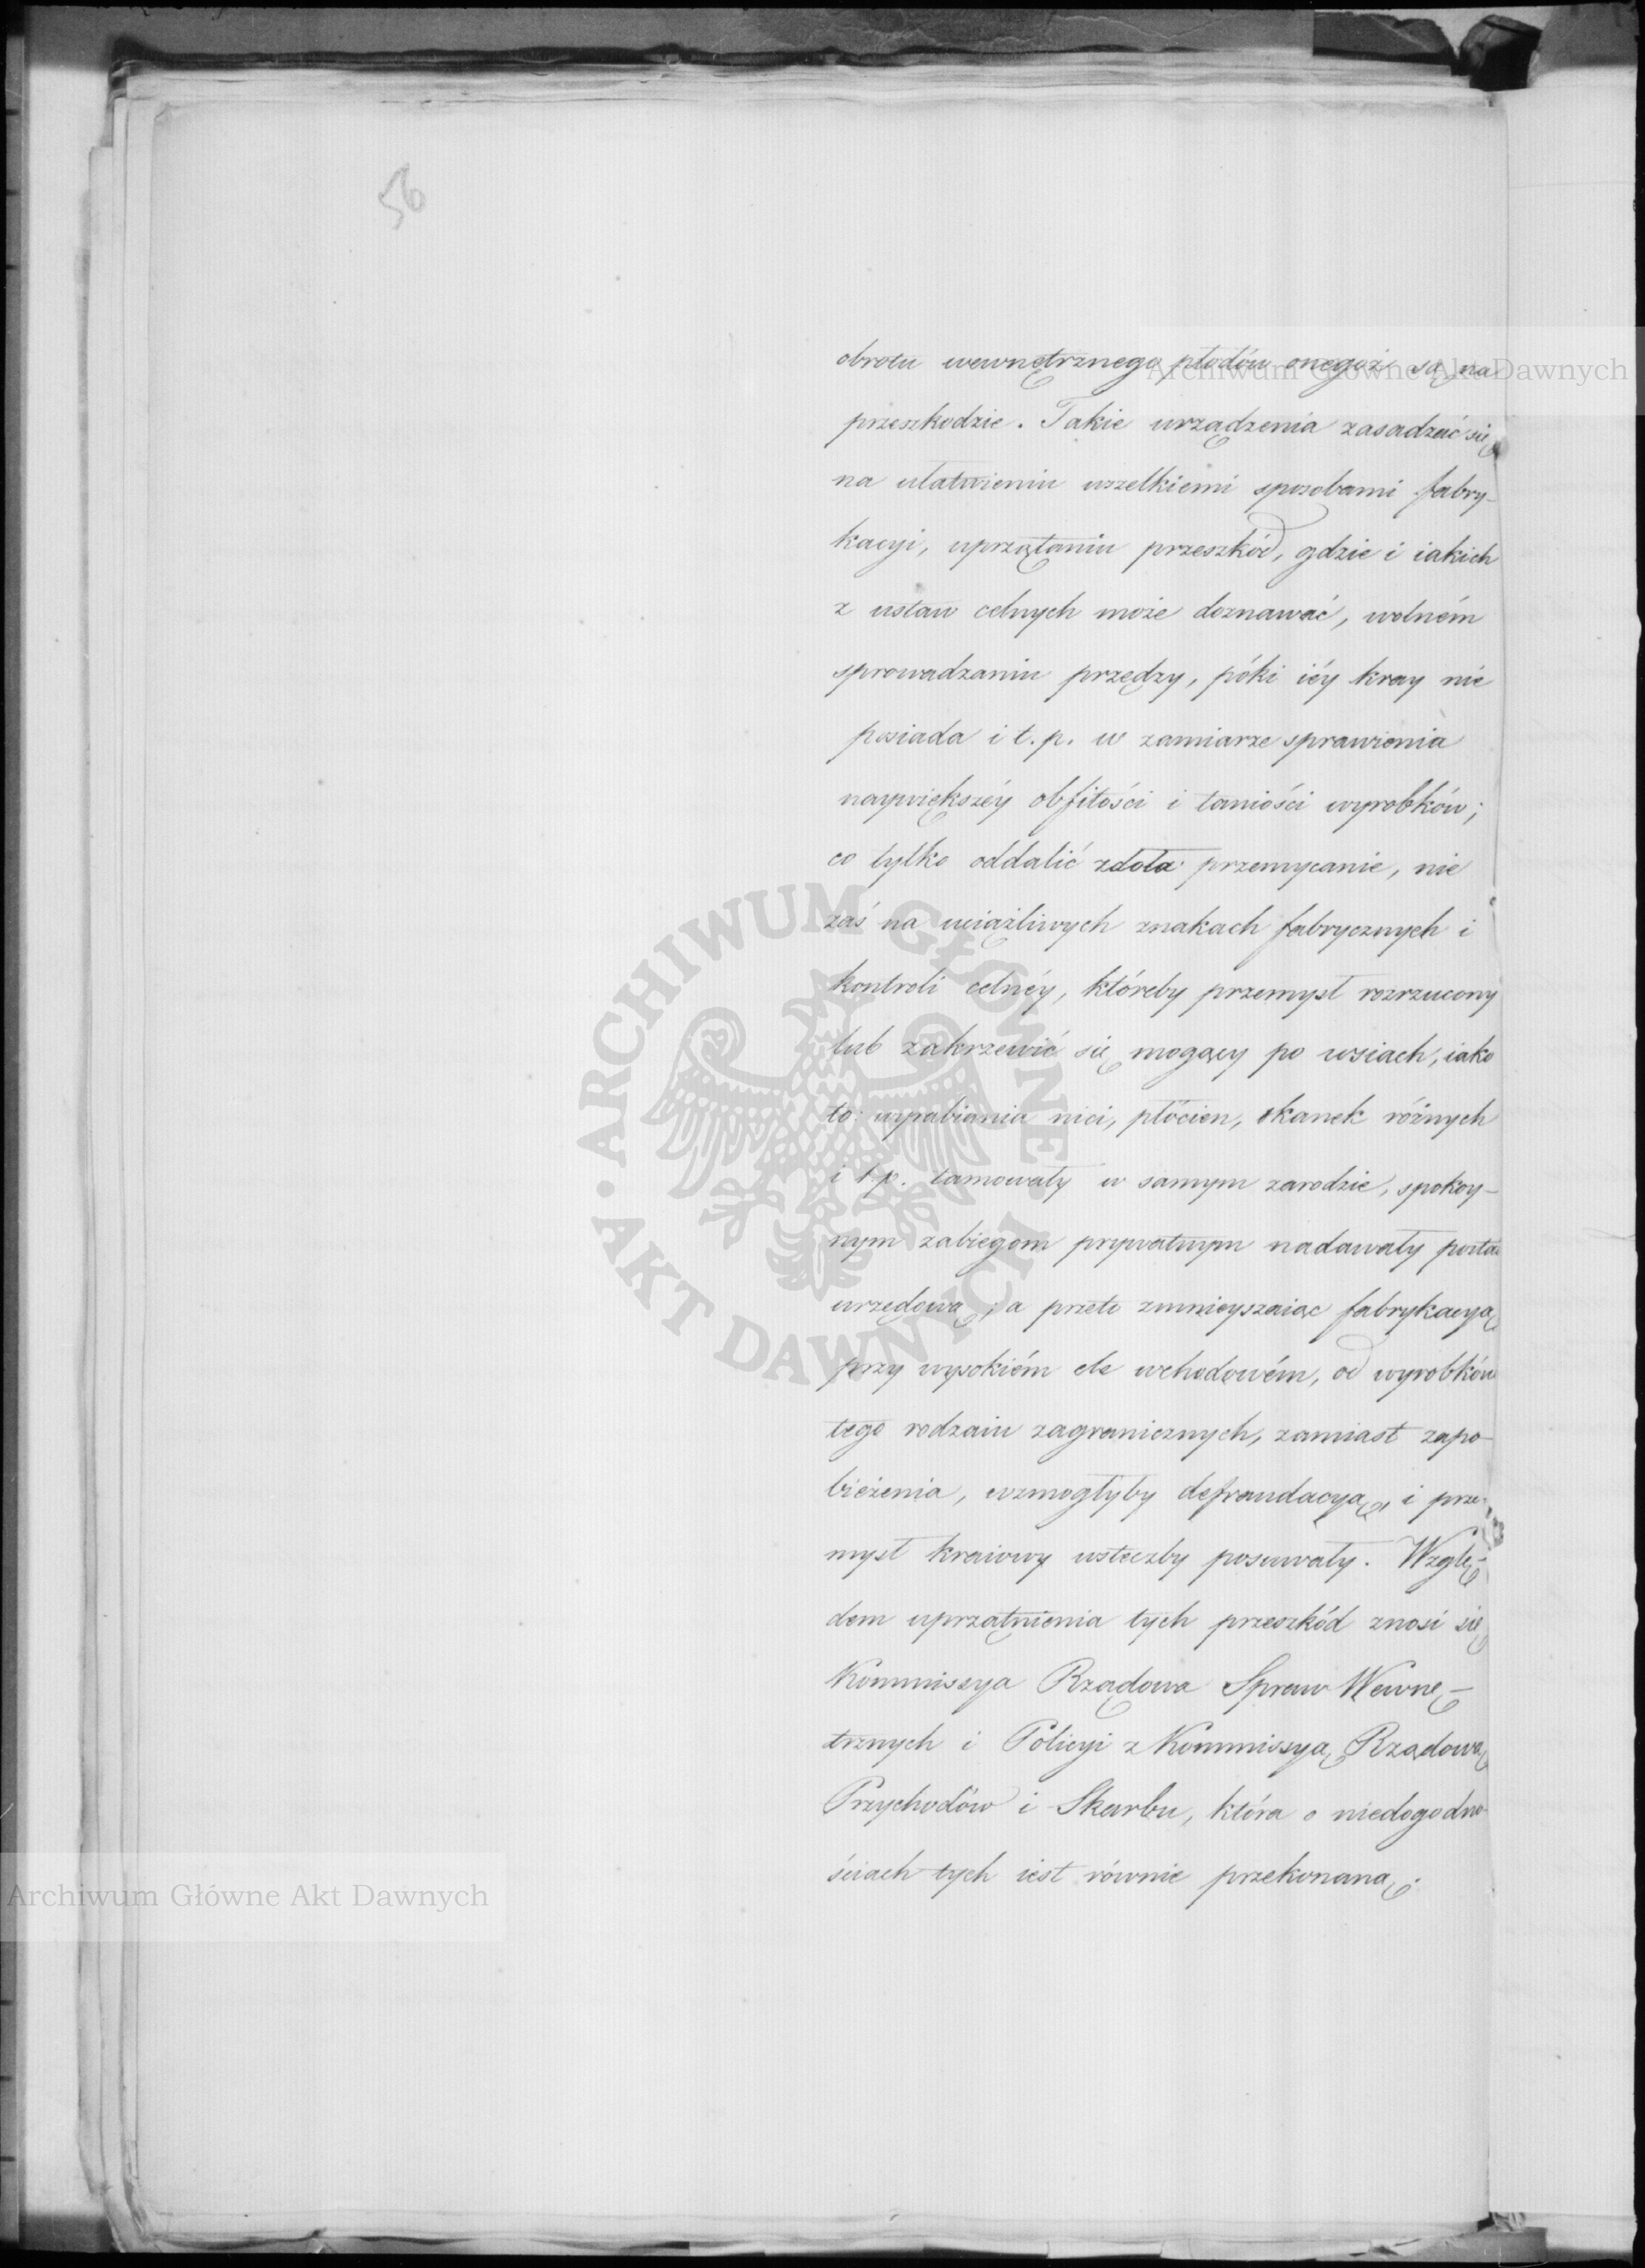 56
obrotu wewnętrznego płodów onegoż są na
przeszkodzie. Takie urządzenia zasadzać się
na ułatwieniu wszelkiemi sposobami fabry-
kacyi, uprzątaniu przeszkód, gdzie i iakich
z ustaw celnych może doznawać, wolném
sprowadzaniu przędzy, póki iéy kray nie
posiada i t. p. w zamiarze sprawienia
naywiększéy obfitości i taniości wyrobków;
co tylko oddalić zdoła przemycanie, nie
zaś na uciążliwych znakach fabrycznych i
kontroli celnéy, któreby przemysł rozrzucony
lub zakrzewić się mogący po wsiach, iako
to: wyrabiania nici, płócien, tkanek różnych
i t. p. tamowały w samym zarodzie, spokoy-
nym zabiegom prywatnym nadawały postać
urzędową, a przeto zmnieyszaiąc fabrykacyą
przy wysokiém cle wchodowém, od wyrobków
tego rodzaiu zagranicznych, zamiast zapo-
bieżenia, wzmogłyby defraudacyą, i prze-
mysł kraiowy wsteczby posuwały. Wzglę-
dem uprzątnienia tych przeszkód znosi się
Kommissya Rządowa Spraw Wewnę-
trznych i Policyi z Kommissyą Rządową
Przychodów i Skarbu, która o niedogodno-
ściach tych iest równie przekonaną.
Archiwum Główne Akt Dawnych
Archiwum Główne Akt Dawnych
ARCHIWUM GŁÓWNE • AKT DAWNYCH •